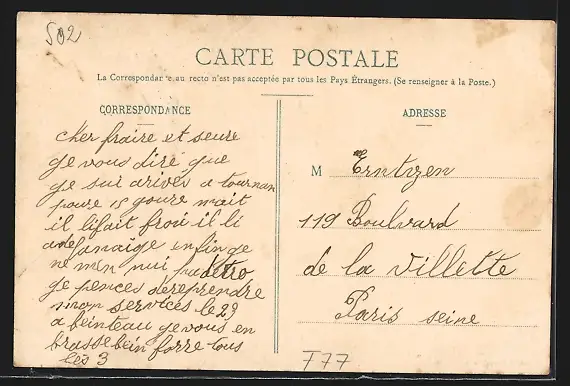 502
CARTE POSTALE
La Correspondance au recto n'est pas acceptée par tous les Pays Étrangers. (Se renseigner à la Poste.)
CORRESPONDANCE
cher fraire et seure
ge vous dire que
ge sui ariver a tournan
poure 15 goure mait
il lifait froi il li
a de lanaige enfin ge
ne men nui pa detro
ge pences dereprendre
mon services le 29
a beinteau ge vous en
brasse bein forre tous
les 3
ADRESSE
M Erntzen
119 Boulvard
de la villette
Paris seine
T77